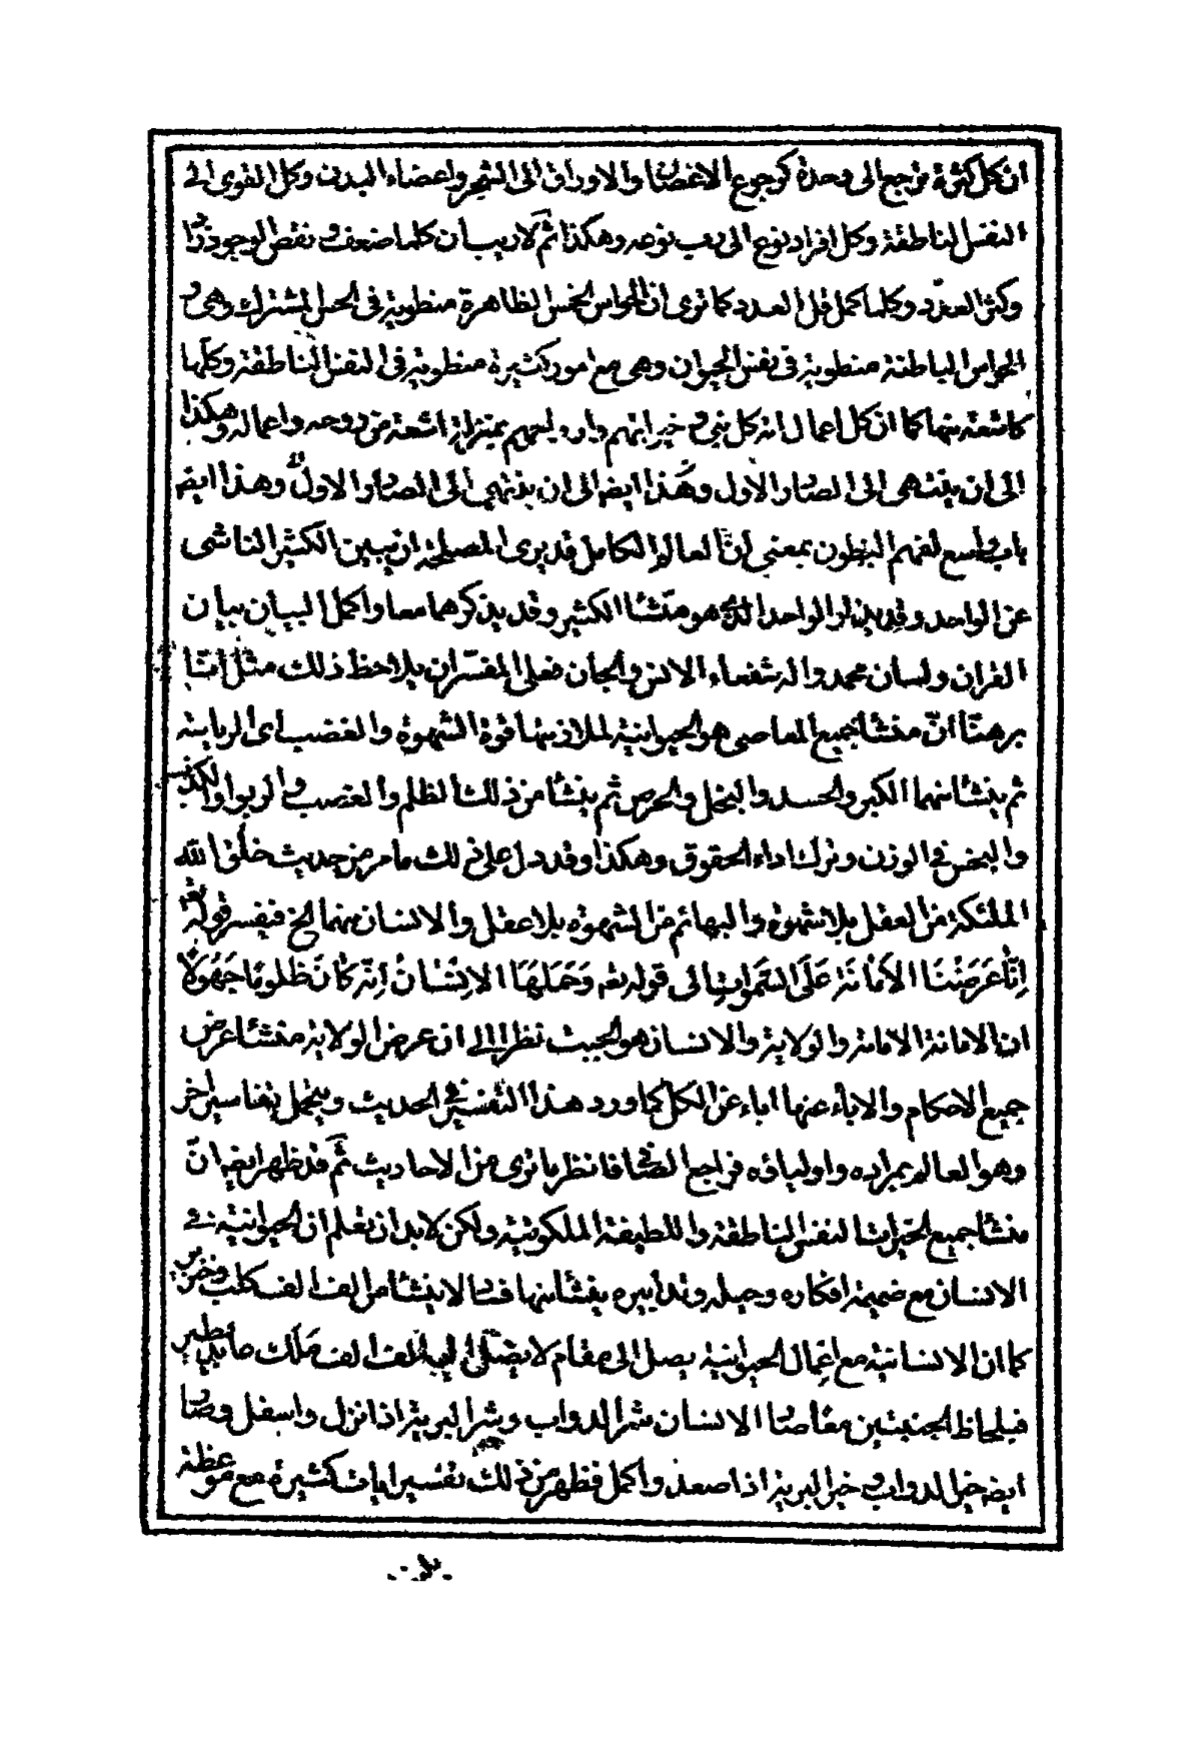 ان كل كثرة ترجع الى وحدة كرجوع الاغصان والاوراق الى الشجر واعضاء البدن وكل القوى الى
النفس الناطقة وكل افراد نوع الى رب نوعه وهكذا ثم لا ريب ان كلما ضعف ونقص الوجود زاد
وكثر العدد وكلما كمل قل العدد كما ترى ان الحواس الخمس الظاهرة منطوية فى الحس المشترك وهى و
الحواس الباطنة منطوية فى نفس الحيوان وهى مع امور كثيرة منطوية فى النفس الناطقة وكلها
كاشعة منها كما ان كل اعمال امة كل نبى و خيراتهم بمنزلة اشعة من روحه واعماله وهكذا
الى ان ينتهى الى الصادر الاول وهذا ايضا الى ان ينتهى الى الصادر الاول وهذا ايضا
باب واسع لفهم البطون بمعنى ان العالم الكامل قد يرى المصلحة ان يبين الكثير الناشى
عن الواحد وقد يذكر الواحد الذى هو منشا الكثير وقد يذكرهما معا واكمل البيان بيان
القران ولسان محمد واله شفعاء الانس والجان فعلى المفسر ان يلاحظ ذلك مثل انا
برهنا ان منشا جميع المعاصى هو الحيوانية الملازمتها قوة الشهوة والغضب اى الرياسة
ثم ينشا منهما الكبر والحسد والبخل والحرص ثم ينشا من ذلك الظلم والغصب والربوا والكذب
والبخس فى الوزن وترك اداء الحقوق وهكذا وقد دل على ذلك ما مر من حديث خلق الله
الملئكة من العقل بلا شهوة والبهائم من الشهوة بلا عقل والانسان منهما الخ فنفسر قوله تعالى
اِنّا عَرَضْنَا الاَمانَةَ عَلَى السَّمواتِ الى قوله تعالى وَحَمَلَهَا الاِنْسَانُ اِنّه كَانَ ظَلُومًا جَهُولًا
ان الامانة الامامة والولاية والانسان هو الخبيث نظرا الى ان عرض الولاية منشا عرض
جميع الاحكام والاباء عنها اباء عن الكل كما ورد هذا التفسير فى الحديث ويحتمل تفاسير اخر
وهو العالم بمراده واولياؤه فراجع الصافى فانظر ما ترى من الاحاديث ثم قد ظهر ايضا ان
منشا جميع الخيرات النفس الناطقة واللطيفة الملكوتية ولكن لابد ان تعلم ان الحيوانية فى
الانسان مع ضميمة افكاره وحيله وتدابيره ينشا منها فساد لا ينشا من الف الف كلب وخنزير
كما ان الانسانية مع اعمال الحيوانية يصل الى مقام لا يصل اليه الف الف ملك
فبلحاظ الجنبتين معا صار الانسان شر الدواب وشر البرية اذا نزل واسفل وصار
ايضا خير الدواب و خير البرية اذا صعد واكمل فظهر من ذلك تفسير ايات كثيرة مع موعظة